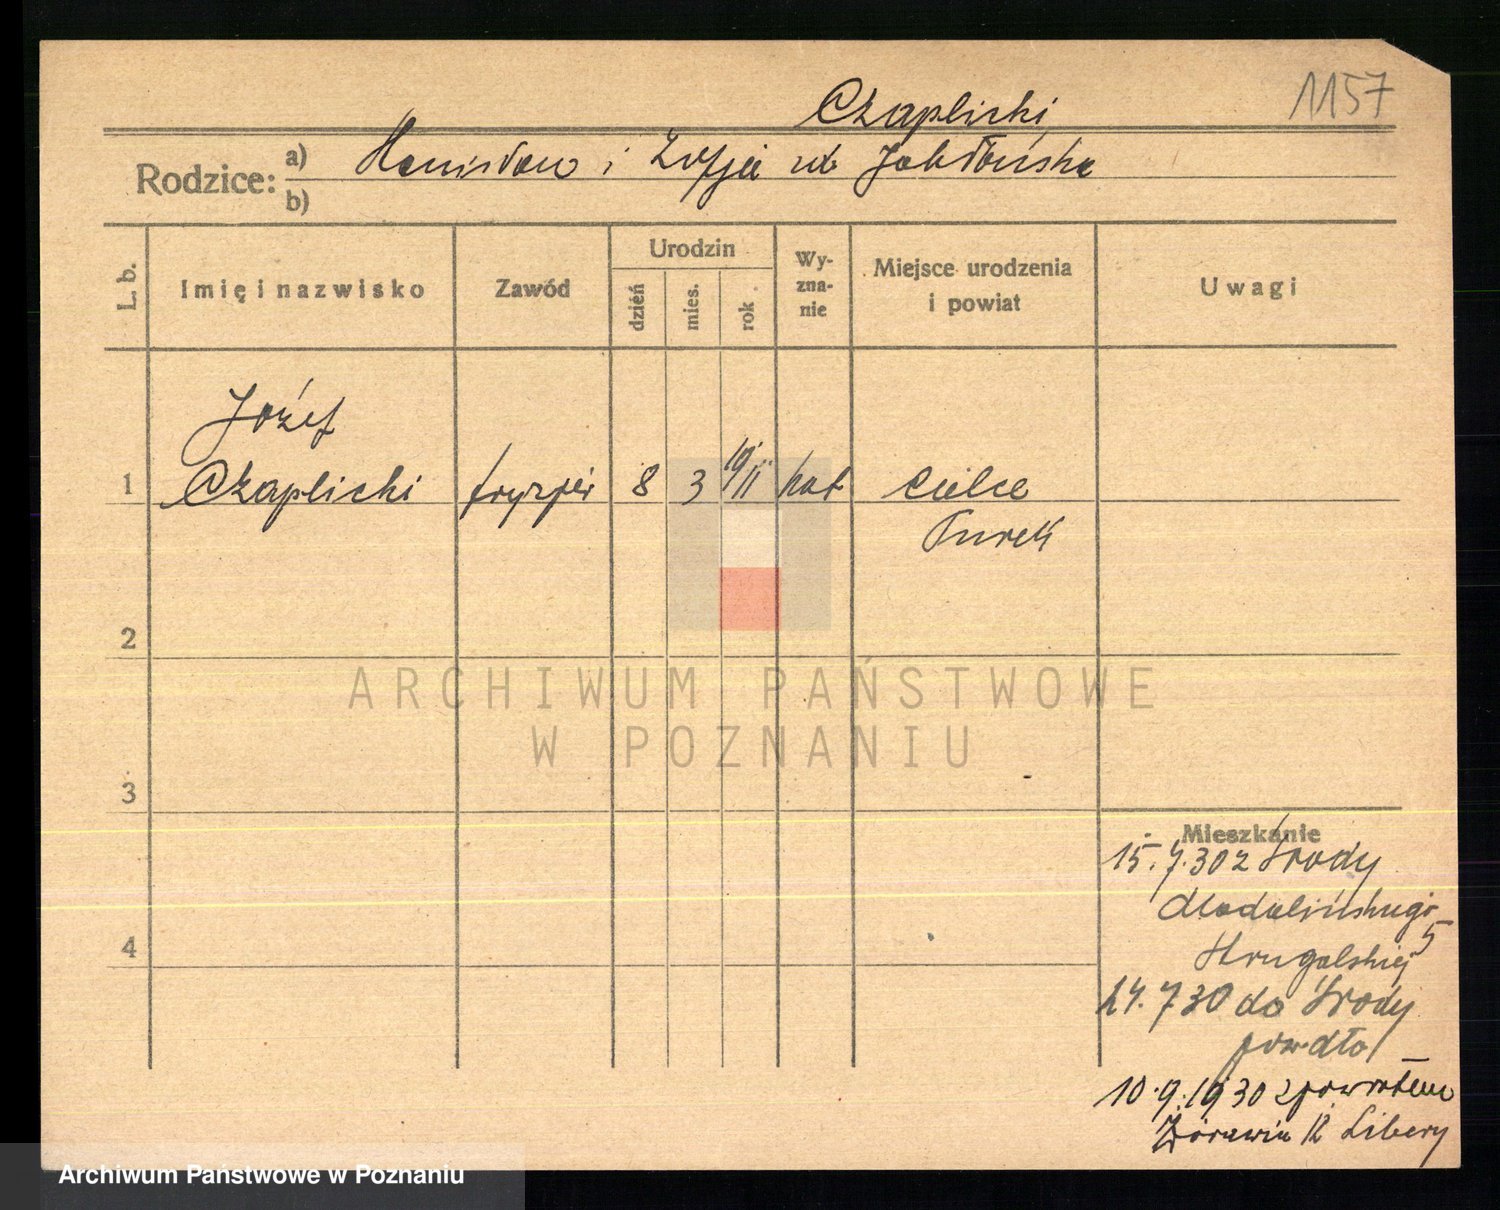 1157
Czaplicki
Rodzice: a) Stanisław i Zofja zd Jabłońska
b)
L. b.
Imię i nazwisko
Zawód
Urodzin
dzień
mies.
rok
Wy-
zna-
nie
Miejsce urodzenia
i powiat
Uwagi
Józef
1 Czaplicki fryzjer 8 3 1911 kat Cielce
Turek
2
ARCHIWUM PAŃSTWOWE
W POZNANIU
3
Mieszkanie
15.7.30 z Środy
Madalińskiego 5
4
24.7.30 do Środy
10.9.1930 z powrotem
Żórawia 12 Libery
Archiwum Państwowe w Poznaniu